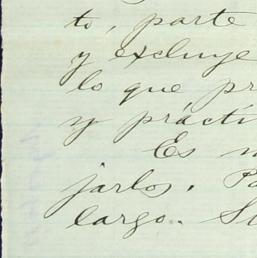 to, parte
y excluye
lo que pr
y prácti
Es
jarlos. Pa
largo. Su